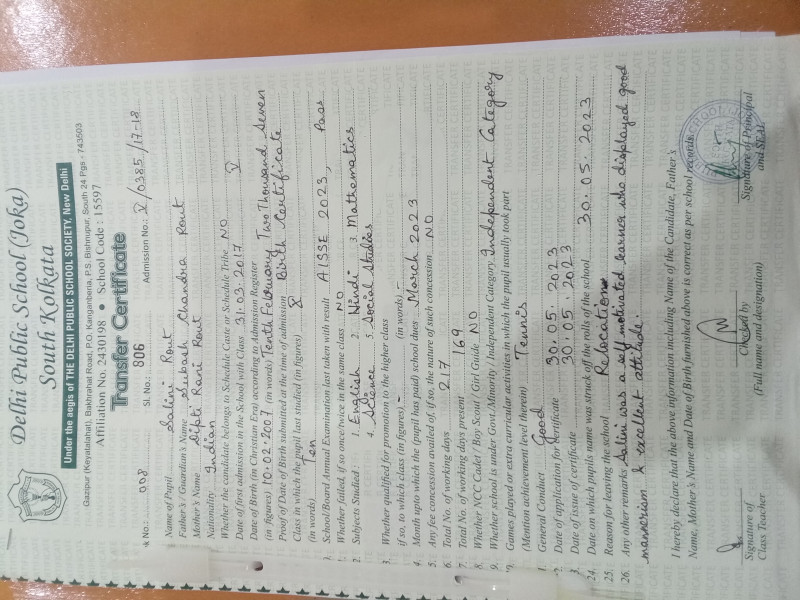 Delhi Public School (Joka)
South Kolkata
Under the aegis of THE DELHI PUBLIC SCHOOL SOCIETY, New Delhi
Gazipur (Keyatalahat), Bakhrahat Road, P.O. Kanganberia, P.S. Bishnupur, South 24 Pgs - 743503
Affiliation No. 2430198 • School Code : 15597
Transfer Certificate
k No.: 008 Sl. No.: 806 Admission No.: V/0385/17-18
Name of Pupil Salini Rout
Father's / Guardian's Name Subash Chandra Rout
Mother's Name Dipti Rani Rout
Nationality Indian
Whether the candidate belongs to Schedule Caste or Schedule Tribe NO
Date of first admission in the School with Class 31.03.2017 V
Date of Birth (in Christian Era) according to Admission Register
(in figures) 10.02.2007 (in words) Tenth February Two Thousand Seven
Proof of Date of Birth submitted at the time of admission Birth Certificate
Class in which the pupil last studied (in figures) X
(in words) Ten
School/Board Annual Examination last taken with result AISSE 2023, Pass
1. Whether failed, if so once/twice in the same class NO
2. Subjects Studied : 1. English 2. Hindi 3. Mathematics
4. Science 5. Social Studies
3. Whether qualified for promotion to the higher class
if so, to which class (in figures) - (in words) -
4. Month upto which the (pupil has paid) school dues March 2023
5. Any fee concession availed of, if so, the nature of such concession NO
6. Total No. of working days 217
7. Total No. of working days present 169
8. Whether NCC Cadet / Boy Scout / Girl Guide NO
9. Whether school is under Govt./Minority / Independent Category Independent Category
Games played or extra curricular activities in which the pupil usually took part
(Mention achievement level therein) Tennis
1. General Conduct Good
2. Date of application for certificate 30.05.2023
3. Date of issue of certificate 30.05.2023
24. Date on which pupils name was struck off the rolls of the school 30.05.2023
25. Reason for leaving the school Relocation
26. Any other remarks Salini was a self motivated learner who displayed good
mannerism & excellent attitude.
I hereby declare that the above information including Name of the Candidate, Father's
Name, Mother's Name and Date of Birth furnished above is correct as per school records.
Signature of Class Teacher
Checked by
(Full name and designation)
Signature of Principal
and SEAL